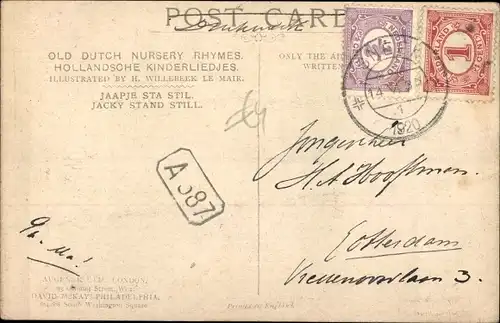 POST CARD
Drukwerk
OLD DUTCH NURSERY RHYMES.
HOLLANDSCHE KINDERLIEDJES.
ILLUSTRATED BY H. WILLEBEEK LE MAIR.
JAAPJE STA STIL.
JACKY STAND STILL.
ONLY THE
WRITTEN
1920
1
A 587
Jongeheer
H. A. Hooftman.
Rotterdam
3.
AUGENER LTD. LONDON,
DAVID McKAY PHILADELPHIA,
South Washington Square
Printed in England